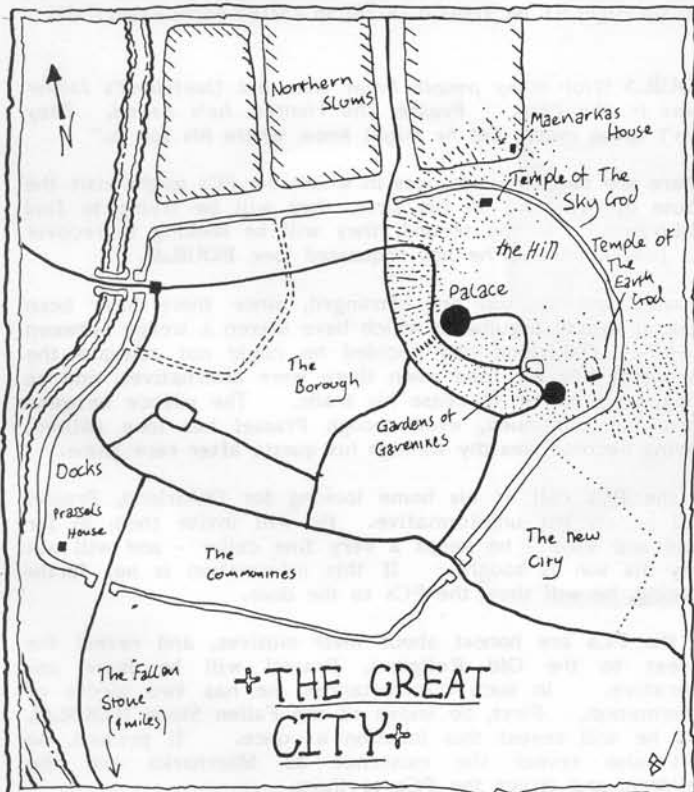 N
Northern
Slums
Maenarkas
House
Temple of The
Sky God
the Hill
Temple of
The
Earth
God
Palace
The
Borough
Gardens of
Docks
Prassels
The new
City
The
The Fallen
Stone
miles)
THE GREAT
CITY